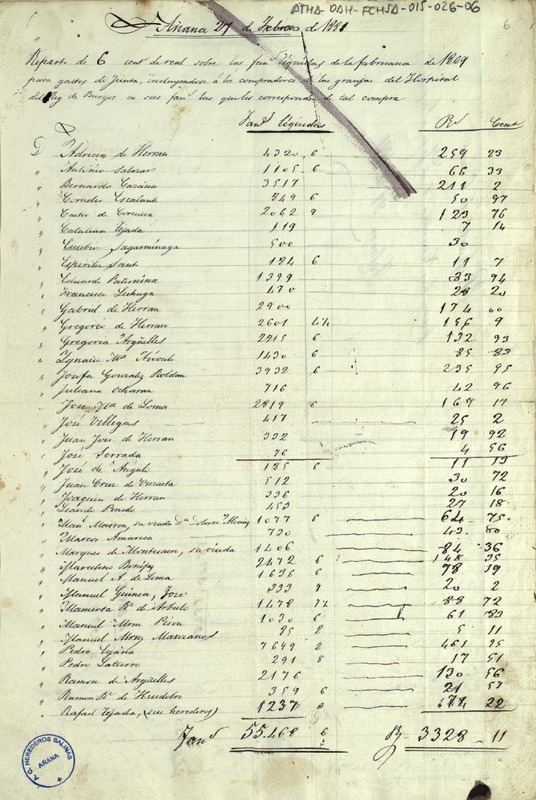 ATHA-DAH-FCHSA-015-026-06
6
Añana 27 de Febrero de 1881
Reparto de 6 cent.s de real sobre las fan.s liquidas de la fabricacion de 1809
para gastos de Junta, incluyendose á los compradores de las granjas del Hospital
del Rey de Burgos en sus fan.s las que les corresponden de tal compra
Fan.s liquidas R.s Cent.s
D. Adrian de Herran 4320 6 259 23
" Antonio Salazar 1105 6 66 33
" Bernardo 3517 211 2
" Cornelio Escalante 849 6 50 97
" Castor de 2062 9 123 76
" Catalina Tejada 119 7 14
" Eusebio Sagarminaga 500 30
" Espiritu Santo 184 6 11 7
" Eduardo Paternina 1399 83 94
" Francisco Lechuga 470 28 20
" Gabriel de Herran 2900 174 00
" Gregorio de Herran 2601 156 9
" Gregoria Argüelles 2215 6 132 93
" Ignacio M.a 1430 6 85 83
" Josefa Gonzalez Roldan 3932 6 235 95
" Juliana Ocharan 716 42 96
" Jose M.a de Loma 2819 6 169 17
" José Villegas 417 25 2
" Juan José de Herran 332 19 92
" José Serrada 76 4 56
" José de Angulo 185 6 11 13
" Juan Cruz de 512 30 72
" Joaquin de Herran 336 20 16
" Leandro Pinedo 453 27 18
" su viuda D.a 1077 6 64 75
" Marcos Amarica 730 43 80
" Marques de Montecaro, su viuda 1406 84 36
" Marcelino Bonifaz 2472 6 148 35
" Manuel A. de Loma 1636 6 98 19
" Manuel Guinea, José 333 9 20 2
" Mamerta R. de 1478 88 72
" Manuel 1030 6 61 83
" Manuel Mrnz Manzanos 85 2 5 11
" Pedro 7649 2 461 95
" Pedro Gutierro 291 8 17 51
" Ramon de Argüelles 2176 130 56
" Ramon R. de 359 6 21 57
" Rafael Tejada, (sus herederos) 1237 6 22
Fan.s 55.468 6 R. 3328 11
A.Q. HEREDEROS SALINAS
AÑANA